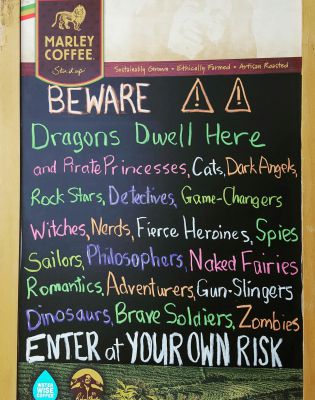 MARLEY
COFFEE
Stir it up
Sustainably Grown • Ethically Farmed • Artisan Roasted
BEWARE
Dragons Dwell Here
and Pirate Princesses, Cats, Dark Angels,
Rock Stars, Detectives, Game-Changers
Witches, Nerds, Fierce Heroines, Spies
Sailors, Philosophers, Naked Fairies
Romantics, Adventurers, Gun-Slingers
Dinosaurs, Brave Soldiers, Zombies
ENTER at YOUR OWN RISK
WATER
WISE
COFFEE